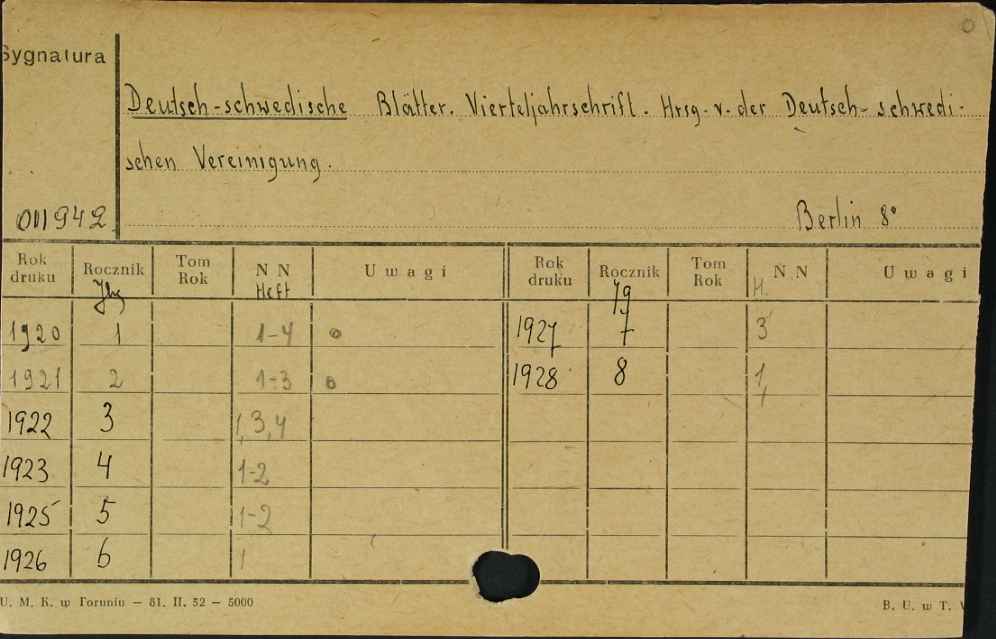 Sygnatura
Deutsch-schwedische Blätter. Vierteljahrschrift. Hrsg. v. der Deutsch-schwedi-
schen Vereinigung.
011942 Berlin 8°
Rok druku Rocznik Tom Rok N N Uwagi Rok druku Rocznik Tom Rok N. N Uwagi
Jhg Heft Jg H.
1920 1 1-4 1927 7 3
1921 2 1-3 B 1928 8 1,
1922 3 1, 3, 4
1923 4 1-2
1925 5 1-2
1926 6 1
U. M. K. w Toruniu — 51. II. 52 — 5000 B. U. w T.